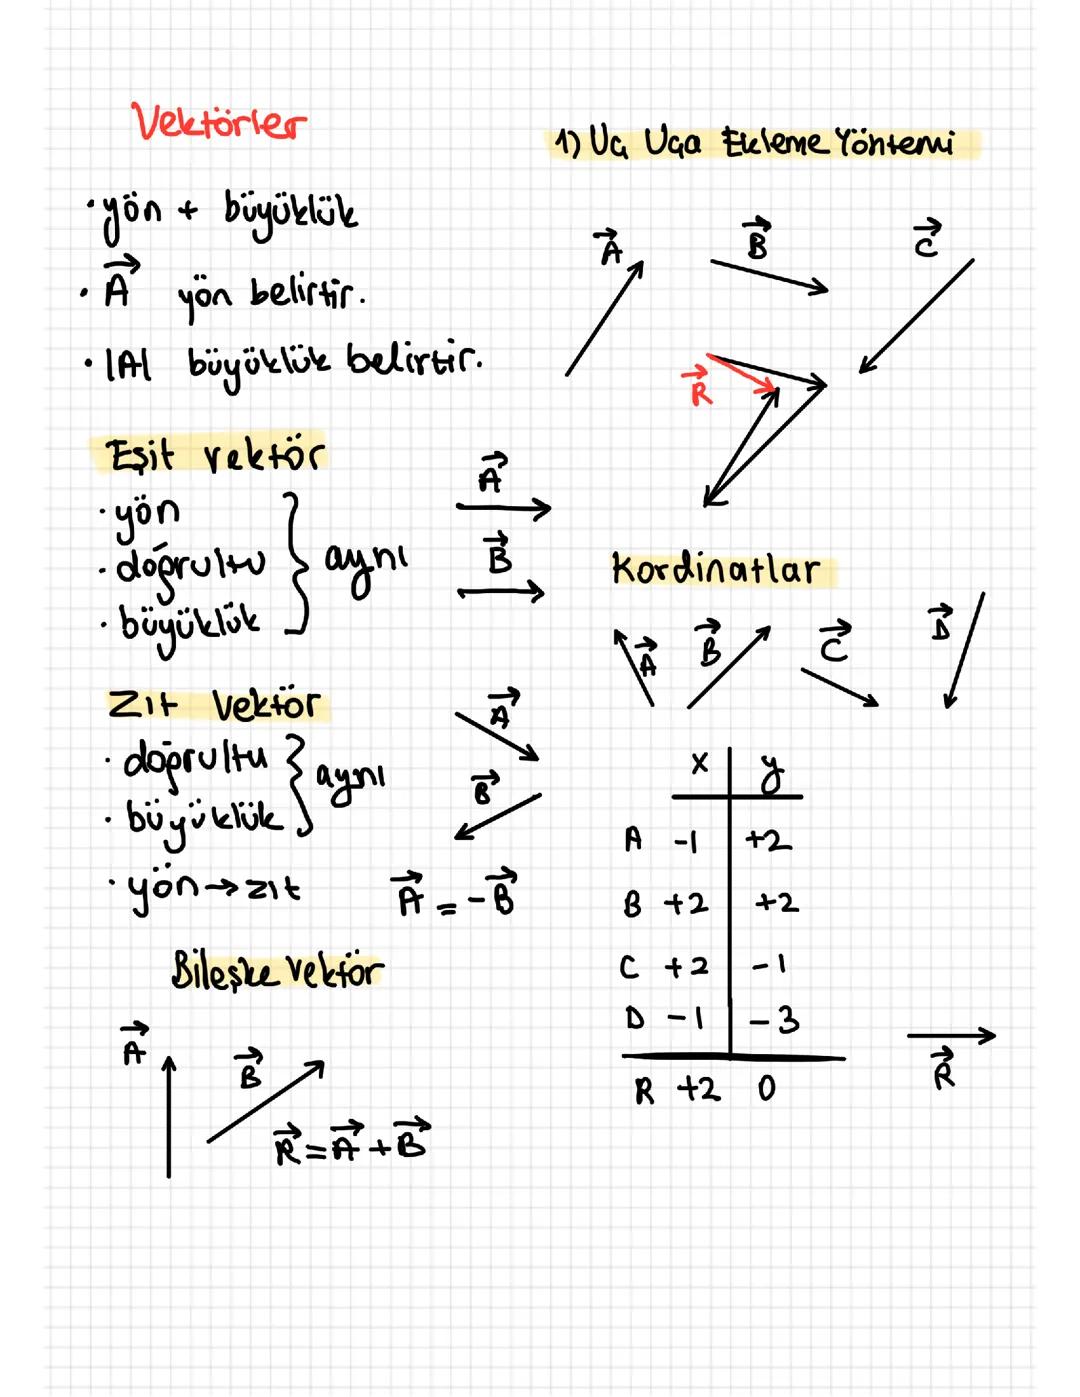 Vektörler
· yön + büyüklük
· A yön belirtir.
· |A| büyüklük belirtir.
Eşit vektör
· yön
· doğrultu
· büyüklük
aynı
A
B
Zıt Vektör
· doğrultu
· büyüklük
aynı
· yön → zıt
A
B
A = -B
Bileşke Vektör
A
B
R = A + B
1) Uç Uca Ekleme Yöntemi
A B C
R
Kordinatlar
A B C D
x y
A -1 +2
B +2 +2
C +2 -1
D -1 -3
R +2 0
R